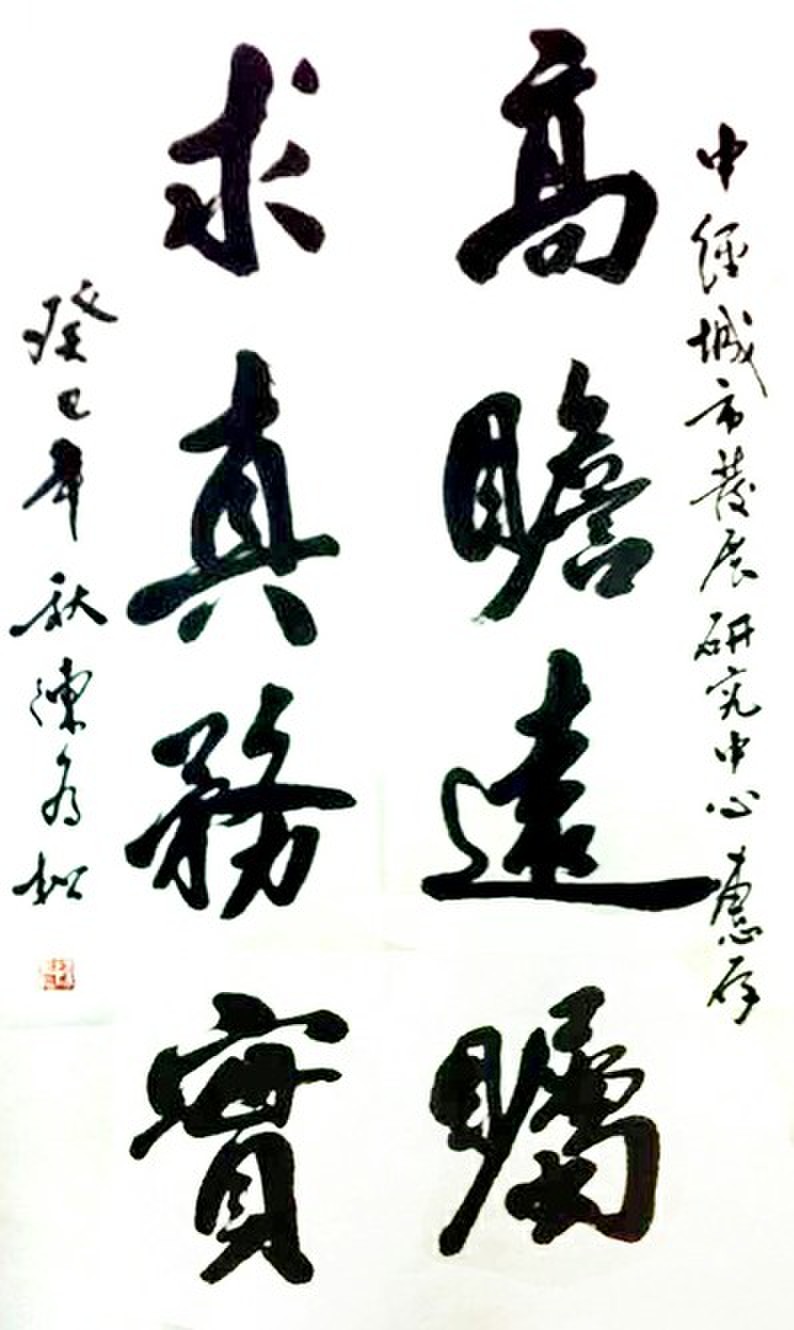 中經城市發展研究中心惠存
高瞻遠矚
求真務實
癸巳年秋陳為松